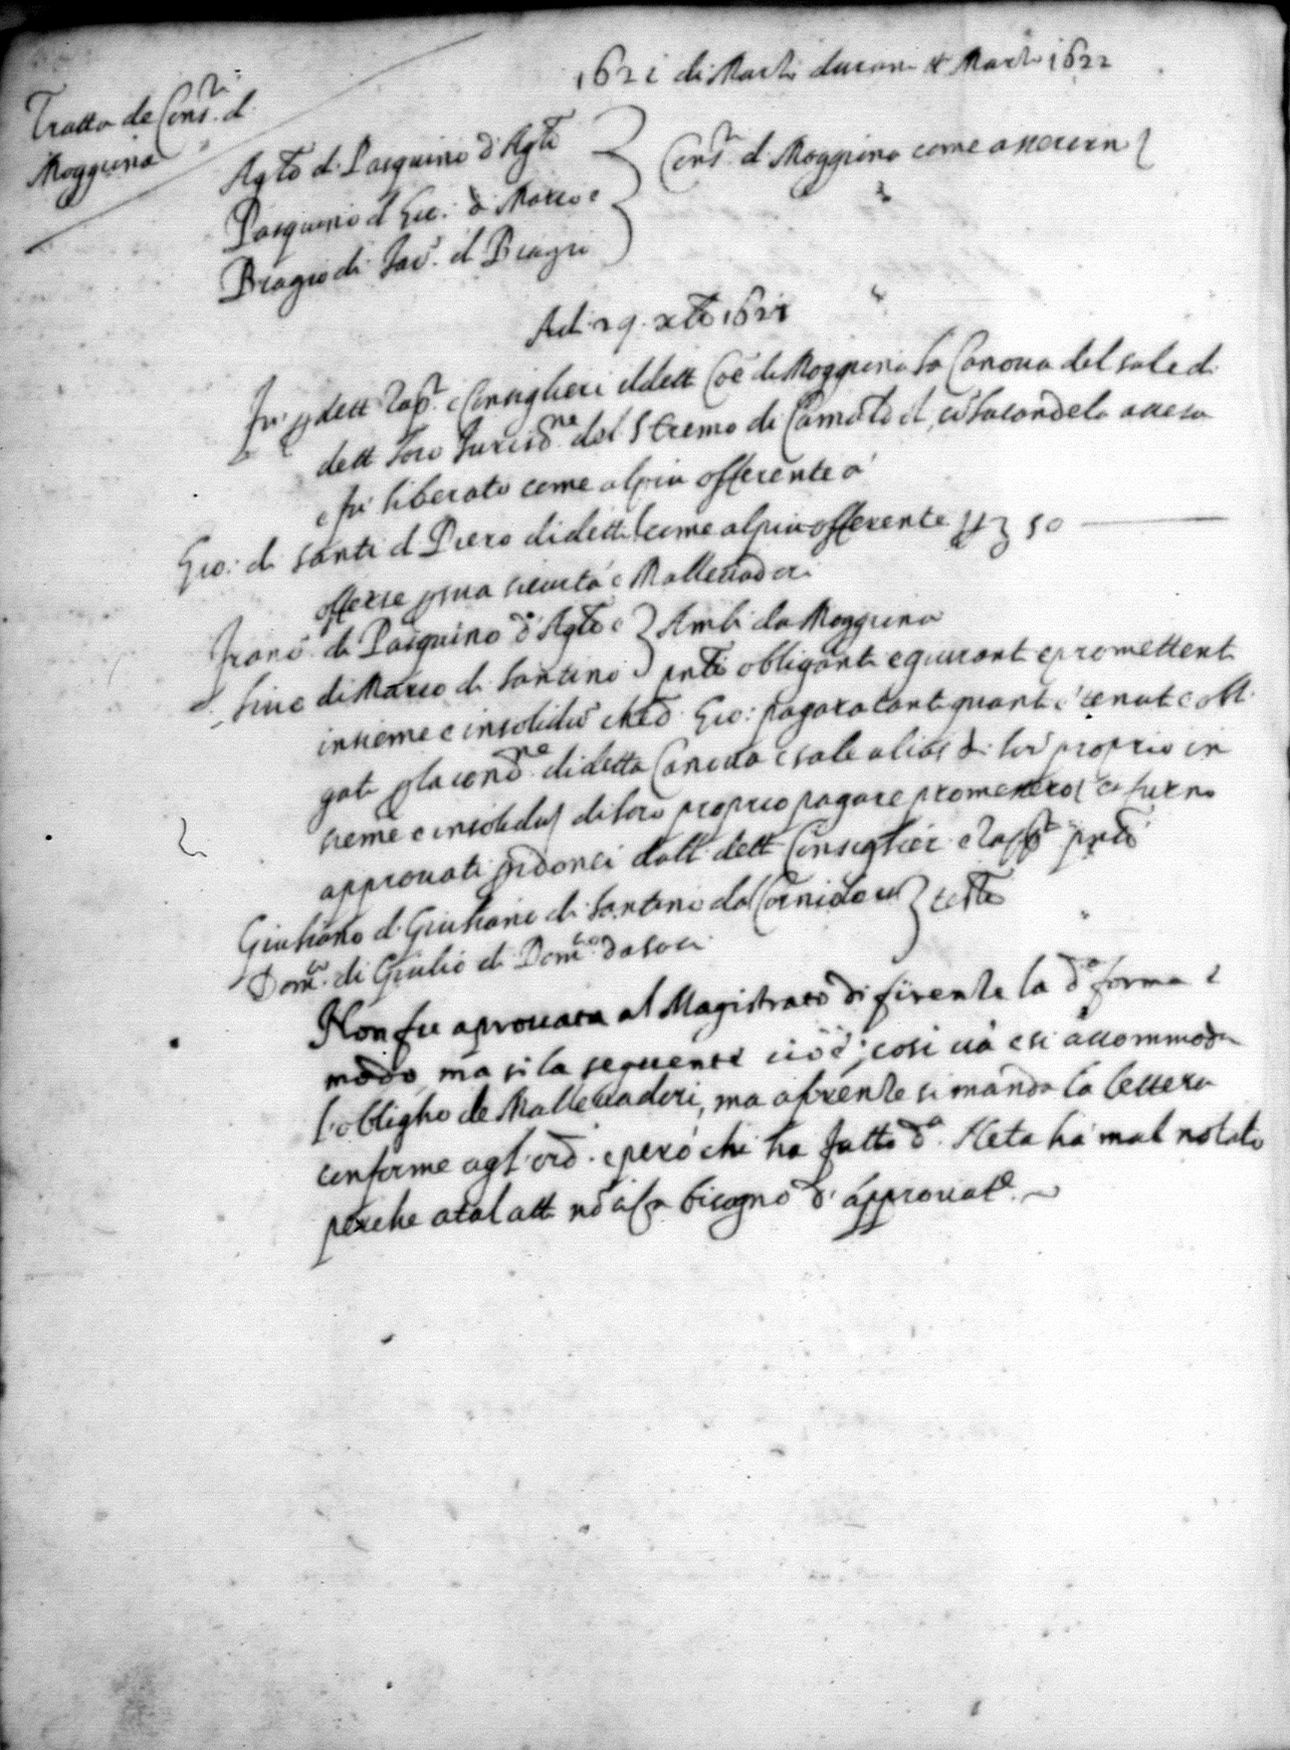 1621 di Marti durani tt Marti 1622
Tratta de Cons.ri d.
Moggiona
Ag.to d. Pasquino d'Ag.to
Pasquino d Gio: d Marco e
Biagio di Fra.o d Biagio
Cons.ri d Moggiona come
Adi 29. xbre 1621
Fu p dett Rap.ti e Consiglieri d dett Coe di Moggiona la Canova del sale di
dett loro Jurisd.ne del Stremo di la candela accesa
e fu liberato come al piu offerente a
Gio: di Santi d Piero di dett come al piu offerente 50
offerse p sua sicurtà e Mallevadori
Franc.o di Pasquino d'Ag.to e
Lino di Marco di Santino
Ambi da Moggiona
pnti obliganti e giurant e promettent
insieme e insolidu che d.o Gio: pagara tant quant e tenut e obli
gati p la cond.ne di detta Canova e sale alias di lor proprio in
sieme e insolidu di loro proprio pagare promessero e furno
approvati p idonei dall dett Consiglieri e Rapp.ti pnti
Giuliano d. Giuliano di Santino dal
Dom.co di Giulio di Dom.co da Soci
testi
Non fu aprovata al Magistrato di firenze la d.a forma e
modo, ma si la seguente cioè; cosi uà e si accommoda
l'obligho de Mallevadori, ma a firenze si manda la lettera
conforme agl'ord. e però chi ha fatto d.a Neta hà mal notato
perche a tal att nò bisogno d'approvat.e